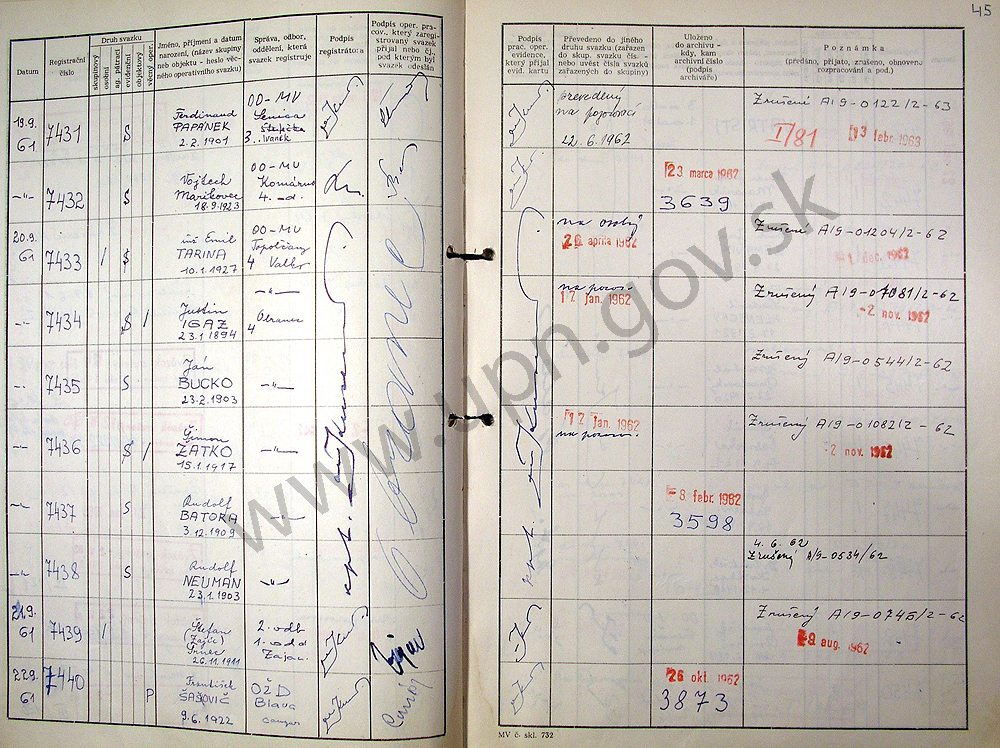 45
Datum
Registrační
číslo
Druh svazku
skupinový
osobní
ag. pátrací
evidenční
objektový
věcný oper.
Jméno, příjmení a datum
narození, (název skupiny
neb objektu - heslo věc-
ného operativního svazku)
Správa, odbor,
oddělení, která
svazek registruje
Podpis
registrátora:
Podpis oper. pra-
cov., který zaregi-
strovaný svazek
přijal nebo čj.
pod kterým byl
svazek odeslán
Podpis
prac. oper.
evidence,
který přijal
evid. kartu
Převedeno do jiného
druhu svazku (zařazen
do skup. svazku čís. -
nebo uvést čísla svazků
zařazených do skupiny)
Uloženo
do archivu -
ky, kam
archivní číslo
(podpis
archiváře)
Poznámka
(předáno, přijato, zrušeno, obnoveno
rozpracování a pod.)
19.9.
61
7431
S
Ferdinand
PAPÁNEK
2.2.1901
OO-MV
Senica
3.. Ivanek
prevedený
na pozorovací
22.6.1962
Zrušené A/9-0122/2-63
I/81
13 febr. 1963
-"-
7432
S
Vojtech
Marikovec
18.9.1923
OO-MV
Komárno
4. -d.
23 marca 1962
3639
20.9.
61
7433
/
S
inš Emil
TARINA
10.1.1927
OO-MV
Topolčany
4 Valko
na osobný
apríla 1962
Zrušené A/9-01204/2-62
1 dec. 1962
-"-
7434
S
/
Justin
IGAZ
23.1.1894
-"-
4
na pozor.
17 jan. 1962
Zrušený A/9-07081/2-62
-2 nov. 1962
-"-
7435
S
Ján
BUCKO
23.2.1903
-"-
Zrušený A/9-0544/2-62
-"-
7436
S
/
Šimon
ŽATKO
15.1.1917
-"-
17 jan. 1962
na pozor.
Zrušený A/9-01082/2-62
-2 nov. 1962
-"-
7437
S
Rudolf
BATORA
3.12.1909
-"-
-8 febr. 1962
3598
-"-
7438
S
Rudolf
NEUMAN
23.1.1903
-"-
4.6.62
Zrušený A/9-0534/62
kpt.
kpt.
21.9.
61
7439
/
Štefan
(Zajíc)
26.11.1911
2. odb
1. odd
Zajac.
Zajac
Zrušený A/9-0745/2-62
-9 aug. 1962
22.9.
61
7440
P
František
ŠAŠOVIČ
9.6.1922
OŽD
Blava
26 okt. 1962
3873
MV č. skl. 732
www.upn.gov.sk